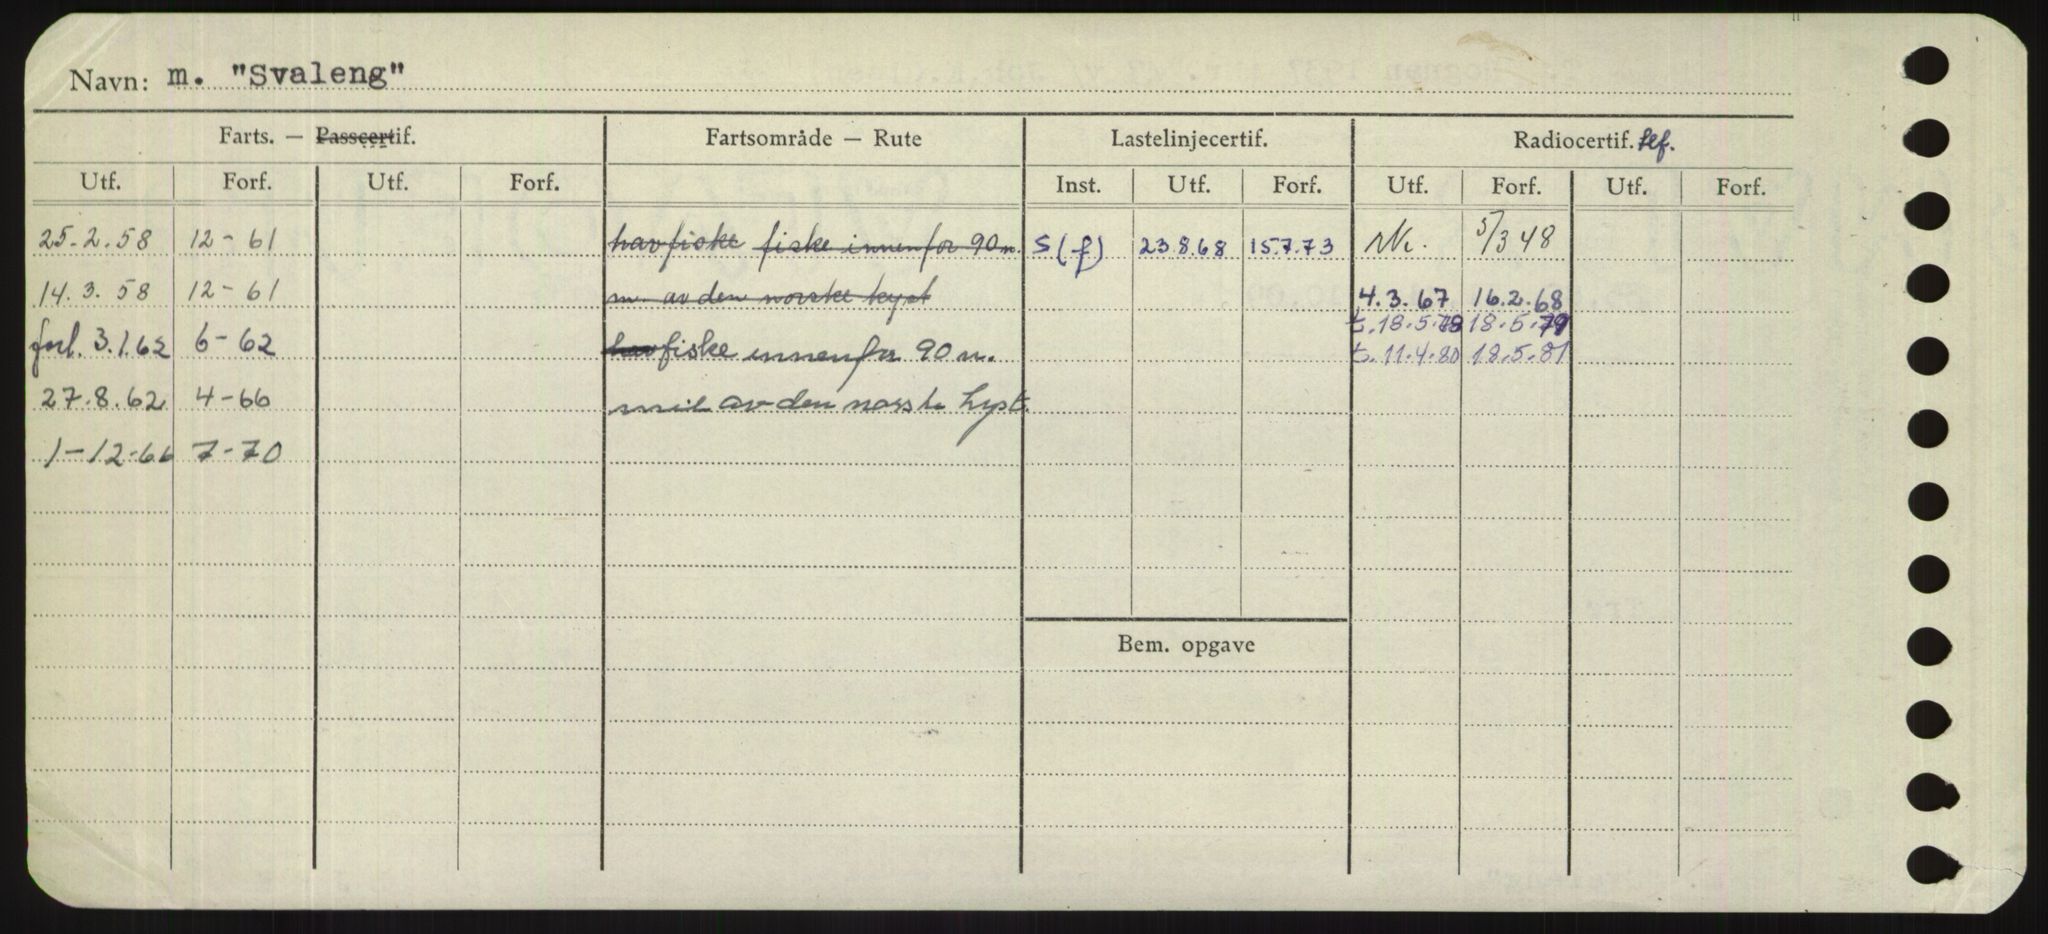 Navn: m. "Svaleng"
Farts. — Passcertif. Fartsområde — Rute Lastelinjecertif. Radiocertif. tlf.
Utf. Forf. Utf. Forf. Inst. Utf. Forf. Utf. Forf. Utf. Forf.
25.2.58 12-61 havfiske fiske innenfor 90 n. S (f) 23.8.68 15.7.73 5/3 48
14.3.58 12-61 m. av den norske kyst 4.3.67 16.2.68
t. 18.5.78 18.5.79
forl. 3.1.62 6-62 hav fiske innenfor 90 n. t. 11.4.80 18.5.81
27.8.62 4-66 mil av den norske kyst.
1-12-66 7-70
Bem. opgave